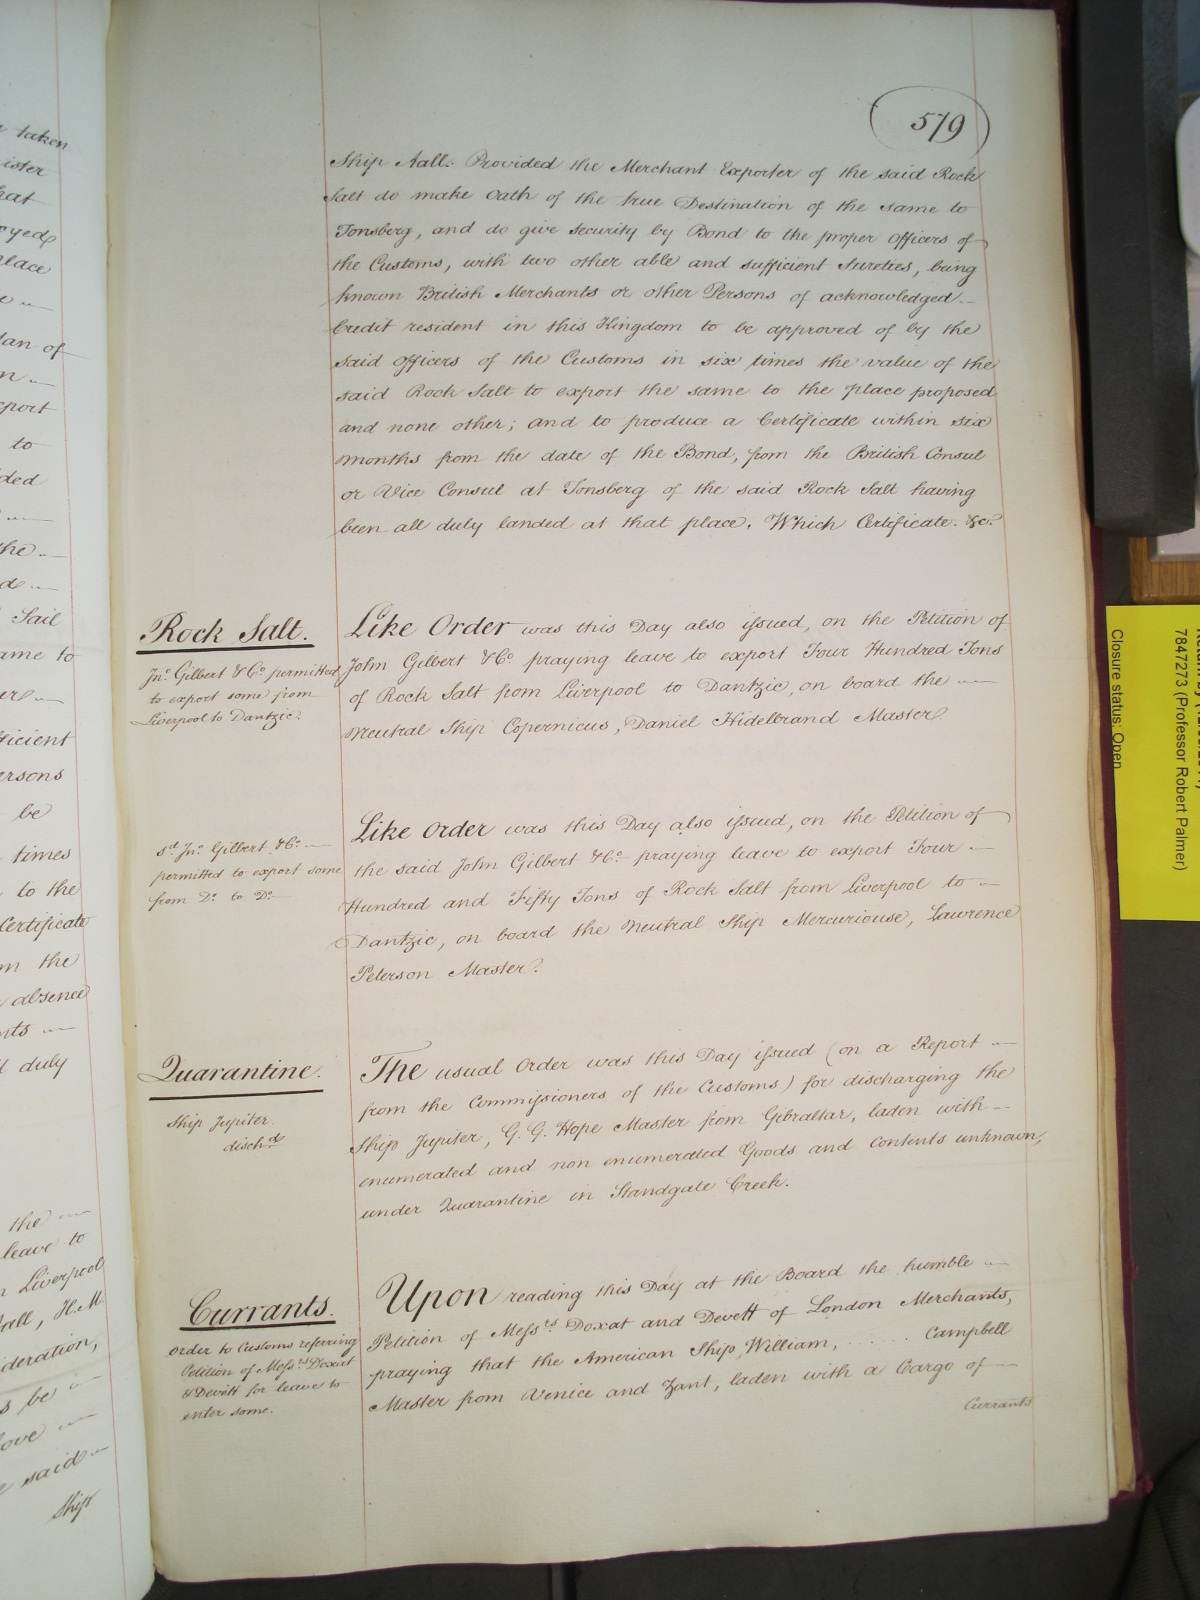 579
Ship Aall. Provided the Merchant Exporter of the said Rock
Salt do make Oath of the true Destination of the same to
Tonsberg, and do give security by Bond to the proper officers of
the Customs, with two other able and sufficient Sureties, being
known British Merchants or other Persons of acknowledged
Credit resident in this Kingdom to be approved of by the
said officers of the Customs in six times the value of the
said Rock Salt to export the same to the place proposed
and none other; and to produce a Certificate within six
months from the date of the Bond, from the British Consul
or Vice Consul at Tonsberg of the said Rock Salt having
been all duly landed at that place. Which Certificate. &c.
Rock Salt.
Jno. Gilbert & Co. permitted
to export some from
Liverpool to Dantzic.
Like Order was this Day also issued, on the Petition of
John Gilbert & Co. praying leave to export Four Hundred Tons
of Rock Salt from Liverpool to Dantzic, on board the
Neutral Ship Copernicus, Daniel Hidelbrand Master.
sd. Jno. Gilbert & Co.
permitted to export some
from Do. to Do.
Like Order was this Day also issued, on the Petition of
the said John Gilbert & Co. praying leave to export Four
Hundred and Fifty Tons of Rock Salt from Liverpool to
Dantzic, on board the Neutral Ship Mercuriouse, Lawrence
Peterson Master.
Quarantine.
Ship Jupiter
dischd.
The usual Order was this Day issued (on a Report
from the Commissioners of the Customs) for discharging the
Ship Jupiter, G. G. Hope Master from Gibraltar, laden with
enumerated and non enumerated Goods and Contents unknown,
under Quarantine in Standgate Creek.
Currants.
Order to Customs referring
Petition of Messrs. Doxat
& Devett for leave to
enter some.
Upon reading this Day at the Board the humble
Petition of Messrs. Doxat and Devett of London Merchants,
praying that the American Ship William, ...... Campbell
Master from Venice and Zant, laden with a Cargo of
Currants
taken
place
port
to
the
Sail
ame to
ficient
ersons
be
times
to the
Certificate
the
absence
duly
the
leave to
Liverpool
all, H. M.
ideration,
be
said
Ship
Closure status: Open
7847273 (Professor Robert Palmer)